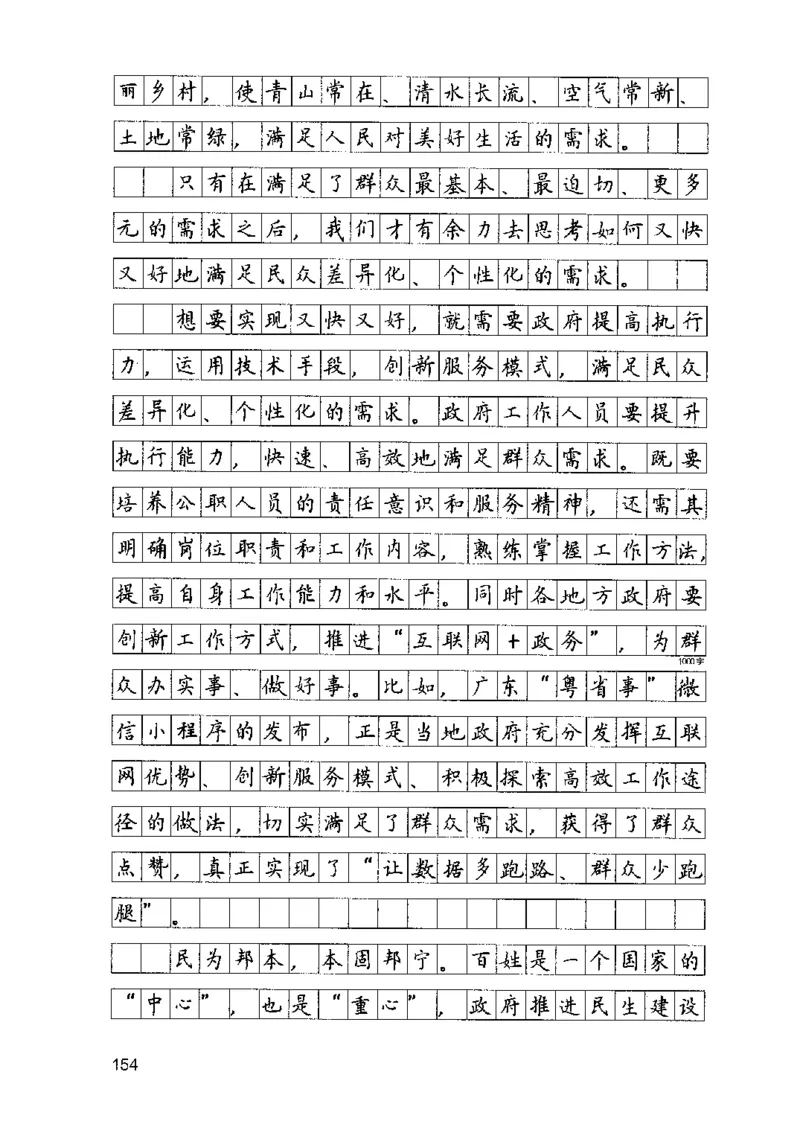 丽乡村，使青山常在、清水长流、空气常新、
土地常绿，满足人民对美好生活的需求。
只有在满足了群众最基本、最迫切、更多
元的需求之后，我们才有余力去思考如何又快
又好地满足民众差异化、个性化的需求。
想要实现又快又好，就需要政府提高执行
力，运用技术手段，创新服务模式，满足民众
差异化、个性化的需求。政府工作人员要提升
执行能力，快速、高效地满足群众需求。既要
培养公职人员的责任意识和服务精神，还需其
明确岗位职责和工作内容，熟练掌握工作方法，
提高自身工作能力和水平。同时各地方政府要
创新工作方式，推进“互联网+政务”，为群
1000字
众办实事、做好事。比如，广东“粤省事”微
信小程序的发布，正是当地政府充分发挥互联
网优势、创新服务模式、积极探索高效工作途
径的做法，切实满足了群众需求，获得了群众
点赞，真正实现了“让数据多跑路、群众少跑
腿”。
民为邦本，本固邦宁。百姓是一个国家的
“中心”，也是“重心”，政府推进民生建设
154